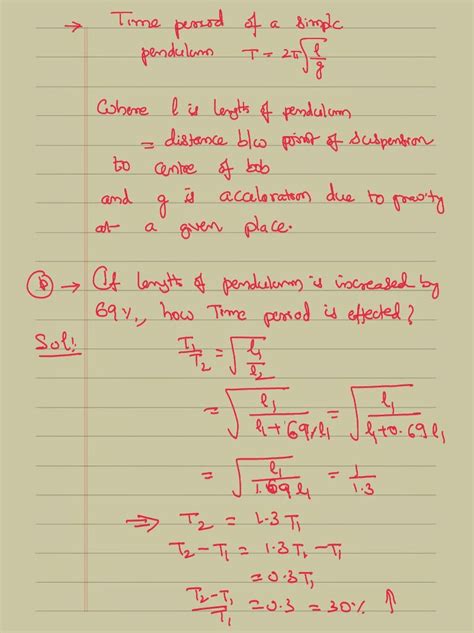 → Time period of a simple
pendulum T = 2π√(l/g)
Where l is length of pendulum
= distance b/w point of suspension
to centre of bob
and g is acceleration due to gravity
at a given place.
Q → If length of pendulum is increased by
69%, how Time period is effected?
Sol: T₁/T₂ = √(l₁/l₂)
= √(l₁/(l₁+69%l₁)) = √(l₁/(l₁+0.69l₁))
= √(l₁/(1.69l₁)) = 1/1.3
⇒ T₂ = 1.3T₁
T₂-T₁ = 1.3T₁-T₁
= 0.3T₁
(T₂-T₁)/T₁ = 0.3 = 30% ↑